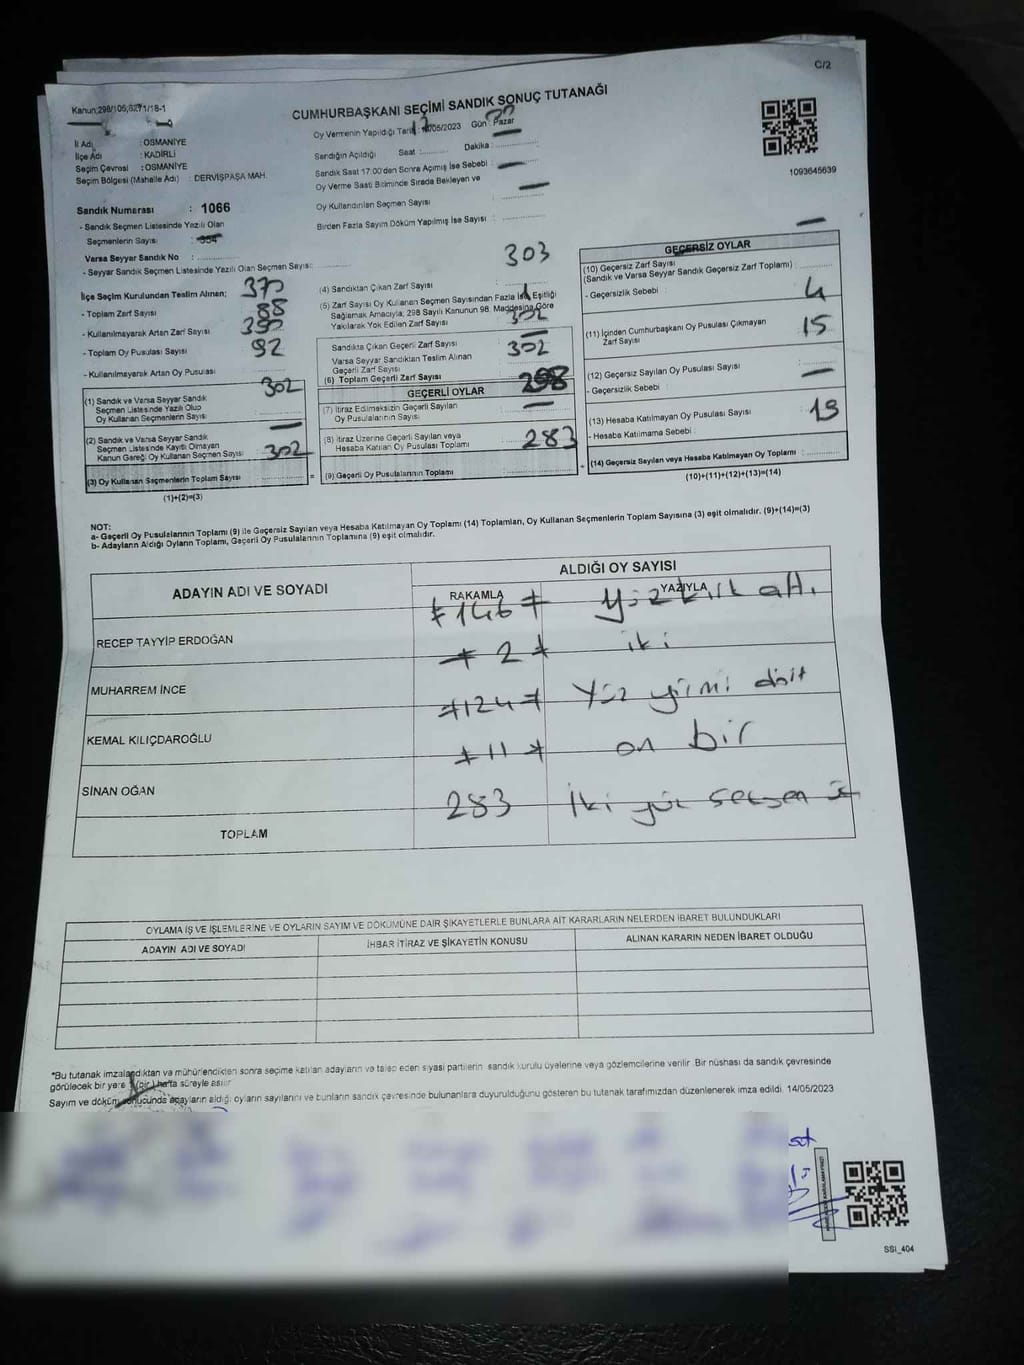 C/2
Kanun:298/105,6271/18-1
CUMHURBAŞKANI SEÇİMİ SANDIK SONUÇ TUTANAĞI
İl Adı : OSMANİYE
İlçe Adı : KADİRLİ
Seçim Çevresi : OSMANİYE
Seçim Bölgesi (Mahalle Adı) : DERVİŞPAŞA MAH.
Oy Vermenin Yapıldığı Tarih /05/2023 Gün: Pazar
Sandığın Açıldığı Saat :........ Dakika :
Sandık Saat 17:00'den Sonra Açılmış İse Sebebi :
Oy Verme Saati Bitiminde Sırada Bekleyen ve
Oy Kullandırılan Seçmen Sayısı
Birden Fazla Sayım Döküm Yapılmış İse Sayısı :
1093645639
Sandık Numarası : 1066
- Sandık Seçmen Listesinde Yazılı Olan
Seçmenlerin Sayısı :
Varsa Seyyar Sandık No :
- Seyyar Sandık Seçmen Listesinde Yazılı Olan Seçmen Sayısı:
İlçe Seçim Kurulundan Teslim Alınan; 370
- Toplam Zarf Sayısı 88
- Kullanılmayarak Artan Zarf Sayısı
- Toplam Oy Pusulası Sayısı 92
- Kullanılmayarak Artan Oy Pusulası
(1) Sandık ve Varsa Seyyar Sandık 302
Seçmen Listesinde Yazılı Olup
Oy Kullanan Seçmenlerin Sayısı
(2) Sandık ve Varsa Seyyar Sandık
Seçmen Listesinde Kayıtlı Olmayan
Kanun Gereği Oy Kullanan Seçmen Sayısı 302
(3) Oy Kullanan Seçmenlerin Toplam Sayısı
(1)+(2)=(3)
303
(4) Sandıktan Çıkan Zarf Sayısı
(5) Zarf Sayısı Oy Kullanan Seçmen Sayısından Fazla İse, Eşitliği
Sağlamak Amacıyla; 298 Sayılı Kanunun 98. Maddesine Göre
Yakılarak Yok Edilen Zarf Sayısı 302
Sandıkta Çıkan Geçerli Zarf Sayısı
Varsa Seyyar Sandıktan Teslim Alınan 302
Geçerli Zarf Sayısı
(6) Toplam Geçerli Zarf Sayısı
GEÇERLİ OYLAR
(7) İtiraz Edilmeksizin Geçerli Sayılan
Oy Pusulalarının Sayısı
(8) İtiraz Üzerine Geçerli Sayılan veya 283
Hesaba Katılan Oy Pusulası Toplamı
(9) Geçerli Oy Pusulalarının Toplamı
GEÇERSİZ OYLAR
(10) Geçersiz Zarf Sayısı
(Sandık ve Varsa Seyyar Sandık Geçersiz Zarf Toplamı)
- Geçersizlik Sebebi : 4
(11) İçinden Cumhurbaşkanı Oy Pusulası Çıkmayan 15
Zarf Sayısı
(12) Geçersiz Sayılan Oy Pusulası Sayısı
- Geçersizlik Sebebi :
(13) Hesaba Katılmayan Oy Pusulası Sayısı 19
- Hesaba Katılmama Sebebi :
(14) Geçersiz Sayılan veya Hesaba Katılmayan Oy Toplamı :
(10)+(11)+(12)+(13)=(14)
NOT:
a- Geçerli Oy Pusulalarının Toplamı (9) ile Geçersiz Sayılan veya Hesaba Katılmayan Oy Toplamı (14) Toplamları, Oy Kullanan Seçmenlerin Toplam Sayısına (3) eşit olmalıdır. (9)+(14)=(3)
b- Adayların Aldığı Oyların Toplamı, Geçerli Oy Pusulalarının Toplamına (9) eşit olmalıdır.
ADAYIN ADI VE SOYADI
ALDIĞI OY SAYISI
RAKAMLA YAZIYLA
≠146≠ yüz kırk altı
RECEP TAYYİP ERDOĞAN
≠2≠ iki
MUHARREM İNCE
≠124≠ Yüz yirmi dört
KEMAL KILIÇDAROĞLU
≠11≠ on bir
SİNAN OĞAN
283 iki yüz seksen üç
TOPLAM
OYLAMA İŞ VE İŞLEMLERİNE VE OYLARIN SAYIM VE DÖKÜMÜNE DAİR ŞİKAYETLERLE BUNLARA AİT KARARLARIN NELERDEN İBARET BULUNDUKLARI
ADAYIN ADI VE SOYADI İHBAR İTİRAZ VE ŞİKAYETİN KONUSU ALINAN KARARIN NEDEN İBARET OLDUĞU
*Bu tutanak imzalandıktan ve mühürlendikten sonra seçime katılan adayların ve talep eden siyasi partilerin sandık kurulu üyelerine veya gözlemcilerine verilir. Bir nüshası da sandık çevresinde
görülecek bir yere 1 (bir) hafta süreyle asılır
Sayım ve döküm sonucunda adayların aldığı oyların sayılarını ve bunların sandık çevresinde bulunanlara duyurulduğunu gösteren bu tutanak tarafımızdan düzenlenerek imza edildi. 14/05/2023
SSI_404